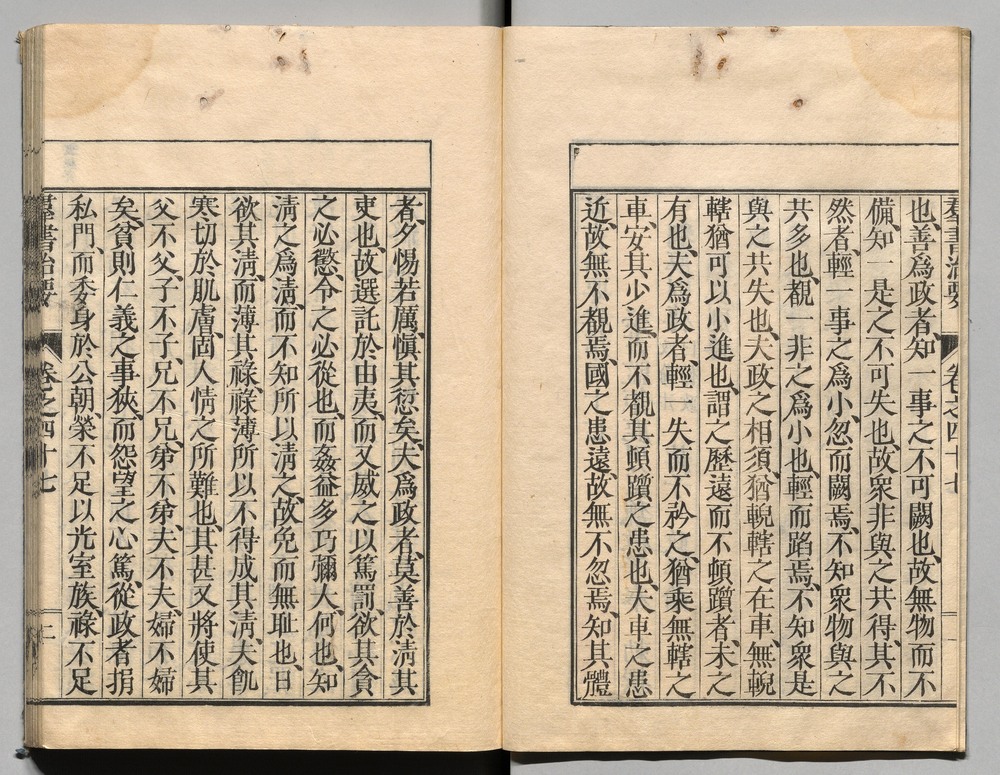 羣書治要 卷之四十七
也、善爲政者、知一事之不可闕也、故無物而不
備、知一是之不可失也、故衆非與之共得、其不
然者、輕一事之爲小、忽而闕焉、不知衆物與之
共多也、覩一非之爲小也、輕而蹈焉、不知衆是
與之共失也、夫政之相須、猶輗轄之在車、無輗
轄猶可以小進也、謂之歷遠而不頓躓者、未之
有也、夫爲政者、輕一失而不矜之、猶乘無轄之
車、安其少進、而不覩其頓躓之患也、夫車之患
近、故無不覩焉、國之患遠、故無不忽焉、知其體
者、夕惕若厲、愼其愆矣、夫爲政者、莫善於淸其
吏也、故選託於由夷、而又威之以篤罰、欲其貪
之必懲、令之必從也、而姦益多巧彌大、何也、知
淸之爲淸、而不知所以淸之、故免而無耻也、日
欲其淸、而薄其祿、祿薄所以不得成其淸、夫飢
寒切於肌膚、固人情之所難也、其甚又將使其
父不父、子不子、兄不兄、弟不弟、夫不夫、婦不婦
矣、貧則仁義之事狹、而怨望之心篤、從政者捐
私門、而委身於公朝、榮不足以光室族、祿不足
羣書治要 卷之四十七 二